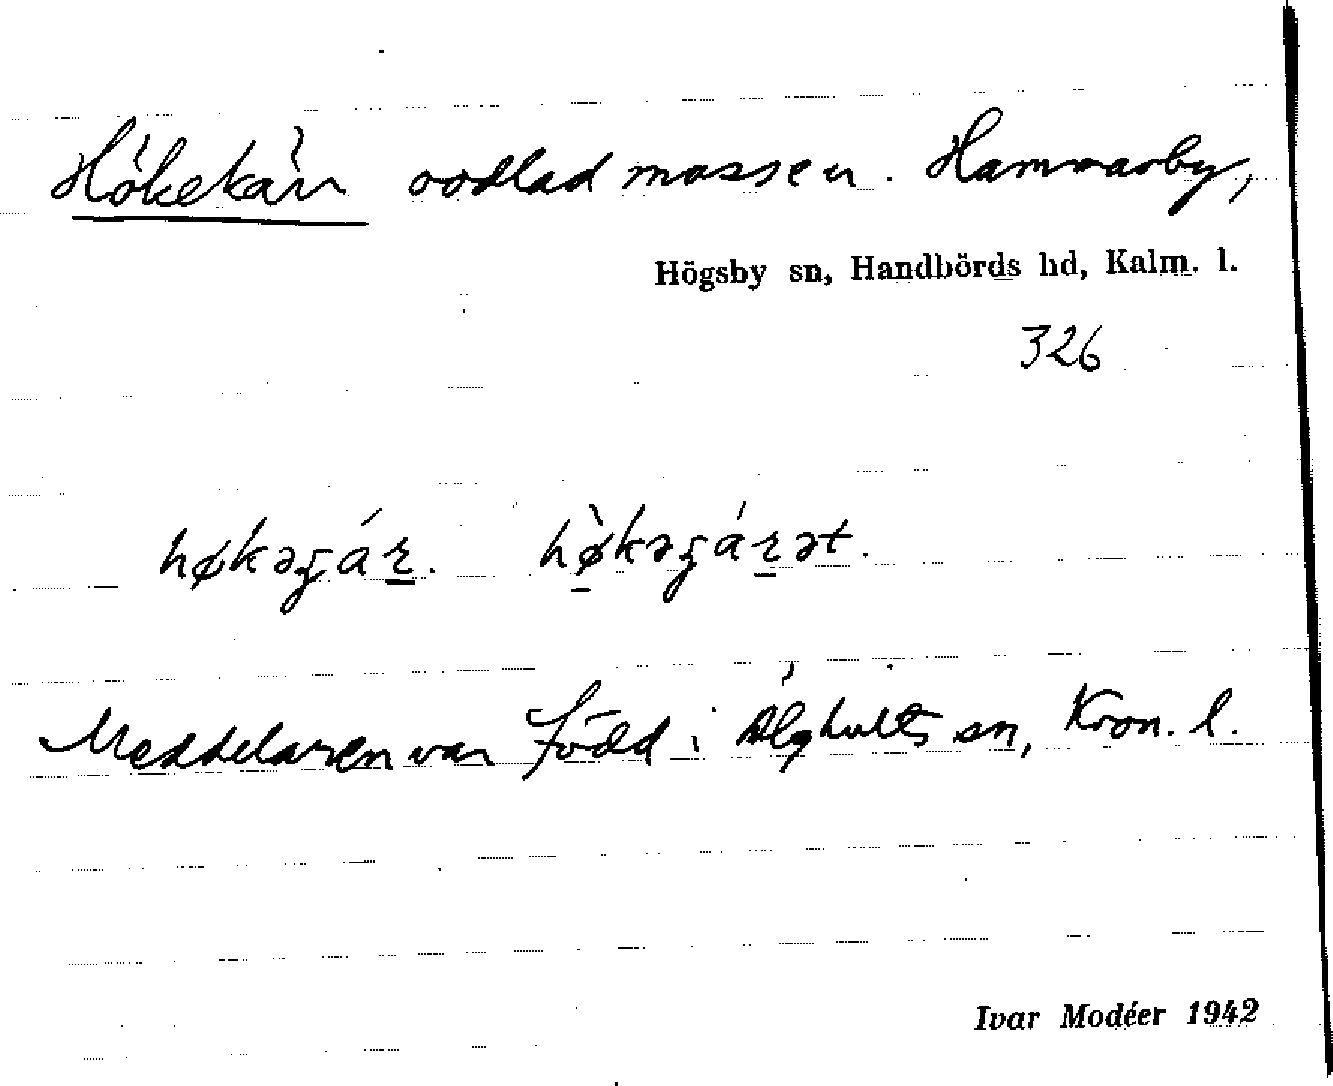 Hökekärr oodlad mossen. Hammarby,
Högsby sn, Handbörds hd, Kalm. l.
326
høkəʒár. hø̀kəʒárət.
Meddelaren var född i Älghults sn, Kron. l.
Ivar Modéer 1942